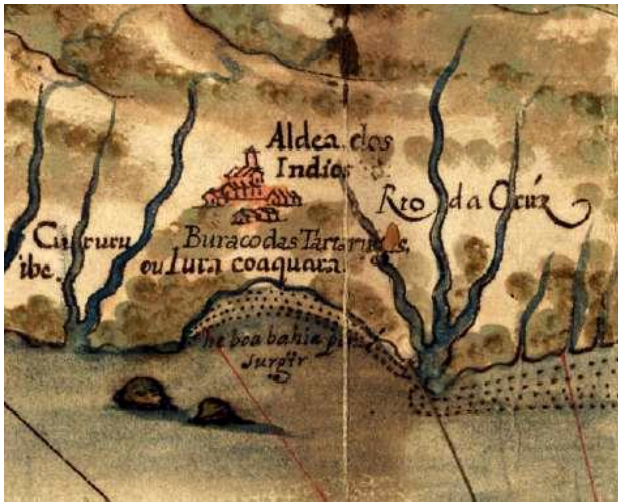 Aldea dos
Indios
Rio da Crúz
Cururu
ibe.
Buraco das Tartarugas,
ou Iura coaquara.
he boa bahia pera
surgir